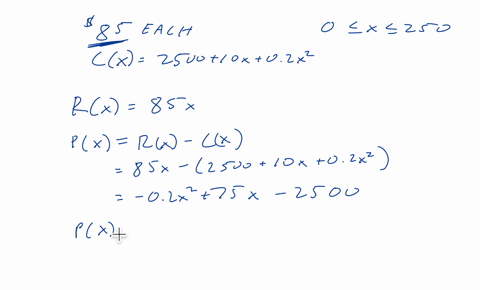 $85 EACH 0 ≤ x ≤ 250
C(x) = 2500+10x+0.2x²
R(x) = 85x
P(x) = R(x) - C(x)
= 85x - (2500 + 10x + 0.2x²)
= -0.2x² + 75x - 2500
P(x)